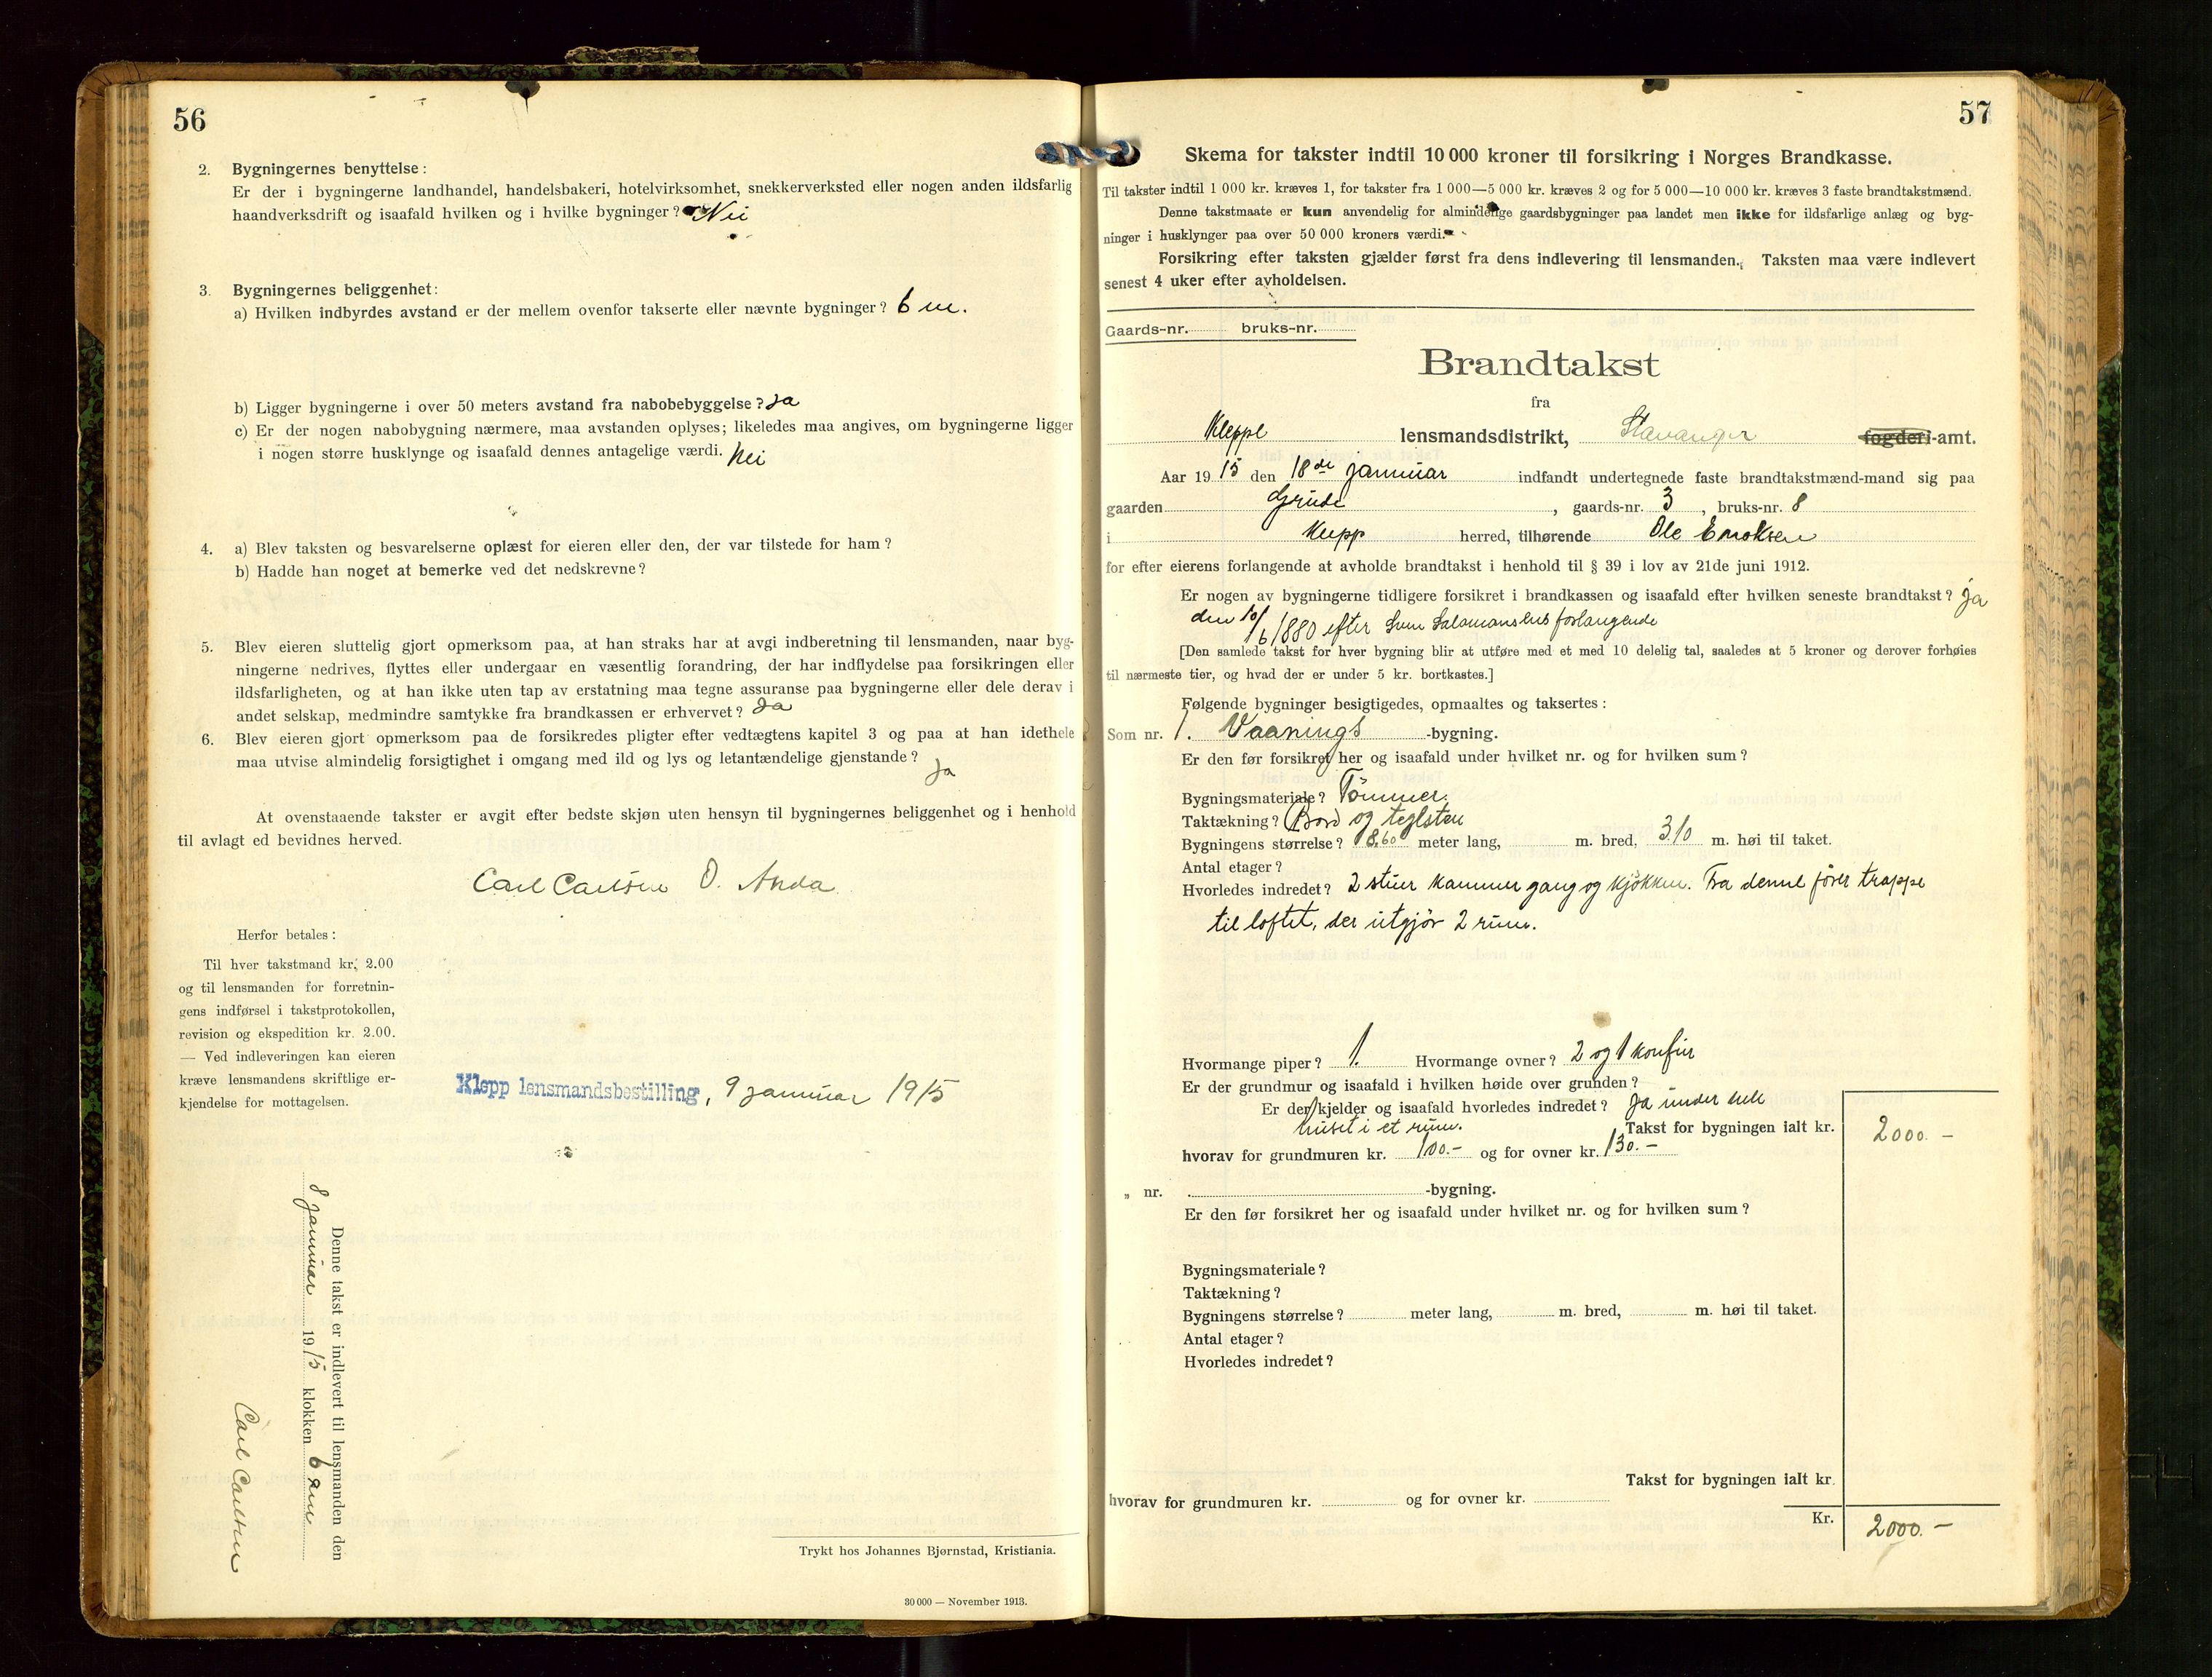 56
2. Bygningernes benyttelse:
Er der i bygningerne landhandel, handelsbakeri, hotelvirksomhet, snekkerverksted eller nogen anden ildsfarlig
haandverksdrift og isaafald hvilken og i hvilke bygninger? Nei
3. Bygningernes beliggenhet:
a) Hvilken indbyrdes avstand er der mellem ovenfor takserte eller nævnte bygninger? 6 m.
b) Ligger bygningerne i over 50 meters avstand fra nabobebyggelse? Ja
c) Er der nogen nabobygning nærmere, maa avstanden oplyses; likeledes maa angives, om bygningerne ligger
i nogen større husklynge og isaafald dennes antagelige værdi. Nei
4. a) Blev taksten og besvarelserne oplæst for eieren eller den, der var tilstede for ham?
b) Hadde han noget at bemerke ved det nedskrevne?
5. Blev eieren sluttelig gjort opmerksom paa, at han straks har at avgi indberetning til lensmanden, naar byg-
ningerne nedrives, flyttes eller undergaar en væsentlig forandring, der har indflydelse paa forsikringen eller
ildsfarligheten, og at han ikke uten tap av erstatning maa tegne assuranse paa bygningerne eller dele derav i
andet selskap, medmindre samtykke fra brandkassen er erhvervet? Ja
6. Blev eieren gjort opmerksom paa de forsikredes pligter efter vedtægtens kapitel 3 og paa at han idethele
maa utvise almindelig forsigtighet i omgang med ild og lys og letantændelige gjenstande? Ja
At ovenstaaende takster er avgit efter bedste skjøn uten hensyn til bygningernes beliggenhet og i henhold
til avlagt ed bevidnes herved.
Carl Carlsen O. Anda
Herfor betales:
Til hver takstmand kr. 2.00
og til lensmanden for forretnin-
gens indførsel i takstprotokollen,
revision og ekspedition kr. 2.00.
— Ved indleveringen kan eieren
kræve lensmandens skriftlige er-
kjendelse for mottagelsen.
Klepp lensmandsbestilling, 9 januar 1915
Denne takst er indlevert til lensmanden den
8 januar 1915 klokken 6 em
Carl Carlsen
Trykt hos Johannes Bjørnstad, Kristiania.
30 000 — November 1913.
57
Skema for takster indtil 10 000 kroner til forsikring i Norges Brandkasse.
Til takster indtil 1 000 kr. kræves 1, for takster fra 1 000—5 000 kr. kræves 2 og for 5 000—10 000 kr. kræves 3 faste brandtakstmænd.
Denne takstmaate er kun anvendelig for almindelige gaardsbygninger paa landet men ikke for ildsfarlige anlæg og byg-
ninger i husklynger paa over 50 000 kroners værdi.
Forsikring efter taksten gjælder først fra dens indlevering til lensmanden. Taksten maa være indlevert
senest 4 uker efter avholdelsen.
Gaards-nr. bruks-nr.
Brandtakst
fra
Kleppe lensmandsdistrikt, Stavanger fogderi-amt.
Aar 1915 den 18de januar indfandt undertegnede faste brandtakstmænd-mand sig paa
gaarden Grude, gaards-nr. 3, bruks-nr. 8
i Klepp herred, tilhørende Ole Enoksen
for efter eierens forlangende at avholde brandtakst i henhold til § 39 i lov av 21de juni 1912.
Er nogen av bygningerne tidligere forsikret i brandkassen og isaafald efter hvilken seneste brandtakst? Ja
den 10/6 1880 efter Sven Salamonsens forlangende
[Den samlede takst for hver bygning blir at utføre med et med 10 delelig tal, saaledes at 5 kroner og derover forhøies
til nærmeste tier, og hvad der er under 5 kr. bortkastes.]
Følgende bygninger besigtigedes, opmaaltes og taksertes:
Som nr. 1. Vaanings-bygning.
Er den før forsikret her og isaafald under hvilket nr. og for hvilken sum?
Bygningsmateriale? Tömmer.
Taktækning? Bord og teglsten
Bygningens størrelse? 18,60 meter lang, m. bred, 3.10 m. høi til taket.
Antal etager?
Hvorledes indredet? 2 stuer kammer gang og kjökken. Fra denne förer trappe
til loftet, der utgjör 2 rum.
Hvormange piper? 1. Hvormange ovner? 2 og 1 komfur
Er der grundmur og isaafald i hvilken høide over grunden?
Er der kjelder og isaafald hvorledes indredet? Ja under hele
huset i et rum. Takst for bygningen ialt kr. 2000.-
hvorav for grundmuren kr. 100.- og for ovner kr. 130.-
„ nr. -bygning.
Er den før forsikret her og isaafald under hvilket nr. og for hvilken sum?
Bygningsmateriale?
Taktækning?
Bygningens størrelse? meter lang, m. bred, m. høi til taket.
Antal etager?
Hvorledes indredet?
Takst for bygningen ialt kr.
hvorav for grundmuren kr. og for ovner kr.
Kr. 2000.-